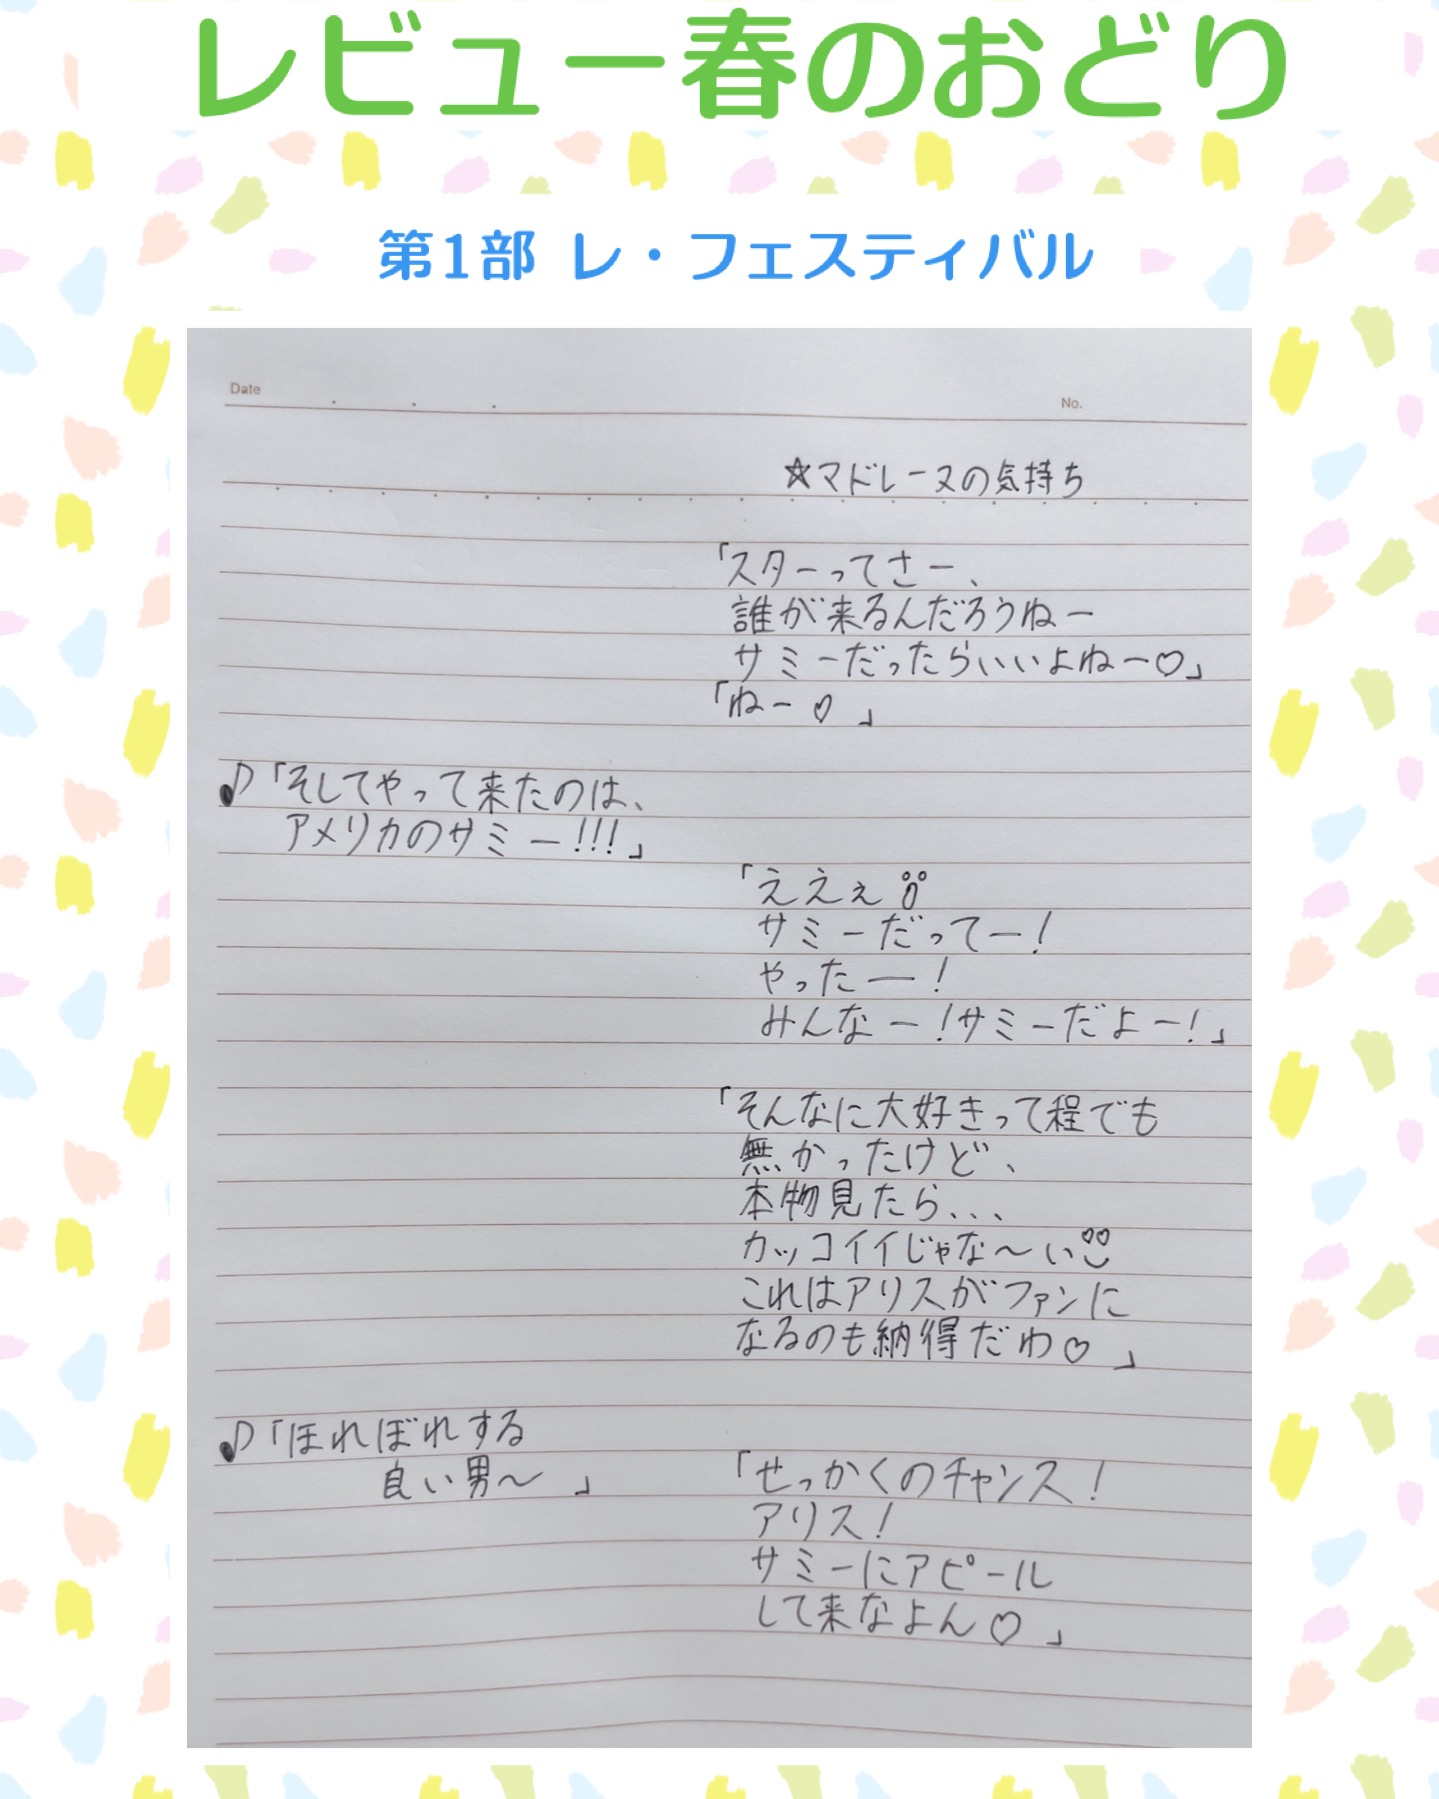 レビュー春のおどり
第1部 レ・フェスティバル
Date
No.
☆マドレーヌの気持ち
「スターってさー、
誰が来るんだろうねー
サミーだったらいいよねー♡」
「ねー♡」
♪「そしてやって来たのは、
アメリカのサミー!!!」
「ええぇ
サミーだってー!
やったー!
みんなー!サミーだよー!」
「そんなに大好きって程でも
無かったけど、
本物見たら、、、
カッコイイじゃな〜い
これはアリスがファンに
なるのも納得だわ♡」
♪「ほれぼれする
良い男〜」
「せっかくのチャンス!
アリス!
サミーにアピール
して来なよん♡」